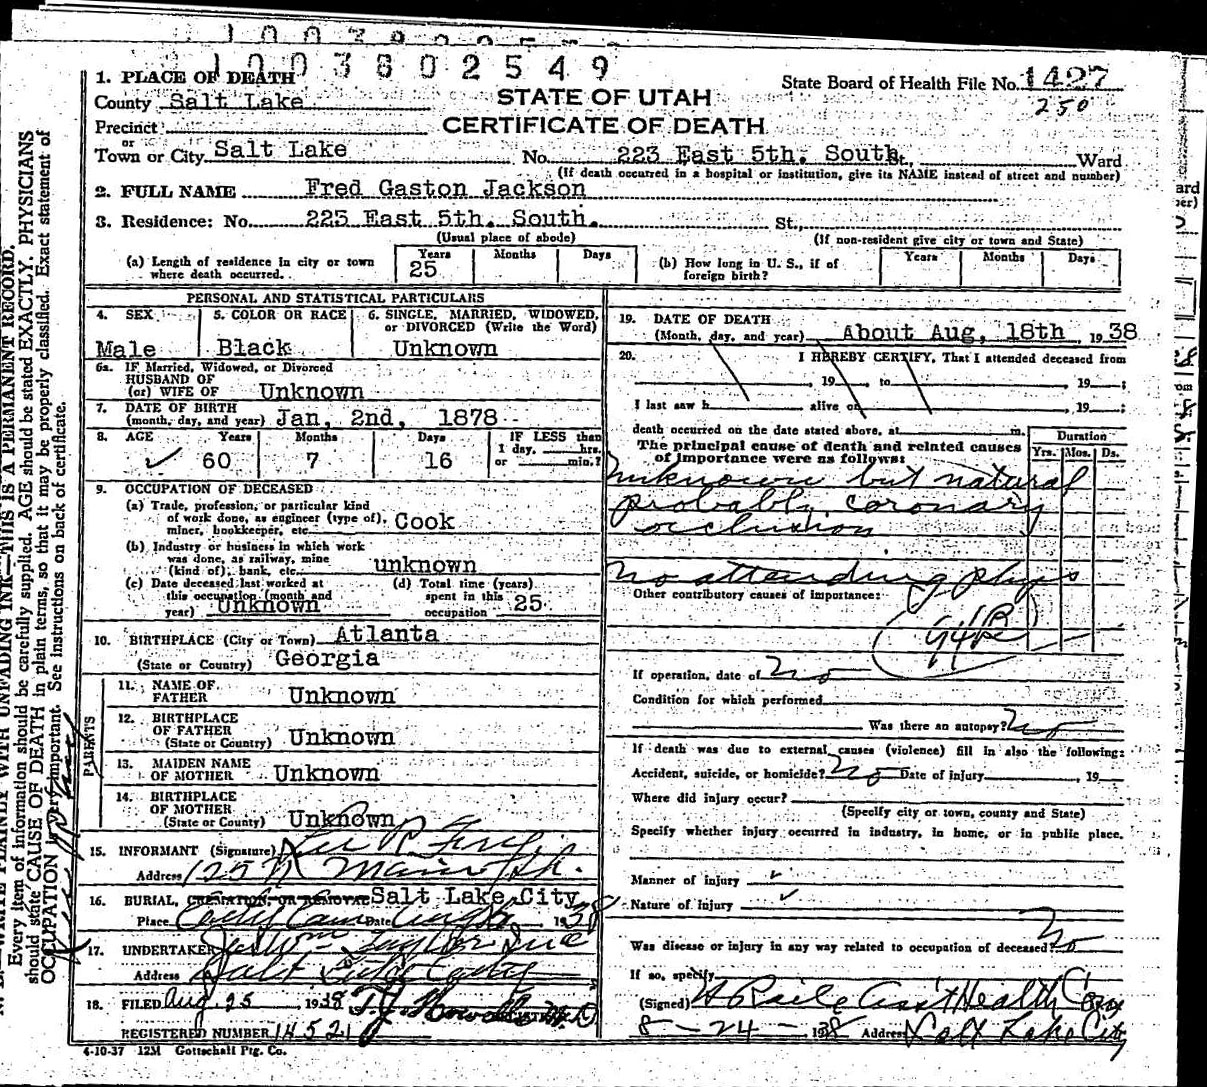 1003802549
1. PLACE OF DEATH
State Board of Health File No. 1427
County Salt Lake
STATE OF UTAH
250
Precinct
CERTIFICATE OF DEATH
or
Town or City Salt Lake No. 223 East 5th. South St., Ward
(If death occurred in a hospital or institution, give its NAME instead of street and number)
2. FULL NAME Fred Gaston Jackson
3. Residence: No. 223 East 5th. South. St.,
(Usual place of abode) (If non-resident give city or town and State)
(a) Length of residence in city or town where death occurred. Years 25 Months Days
(b) How long in U. S., if of foreign birth? Years Months Days
PERSONAL AND STATISTICAL PARTICULARS
4. SEX Male
5. COLOR OR RACE Black
6. SINGLE, MARRIED, WIDOWED, or DIVORCED (Write the Word) Unknown
6a. IF Married, Widowed, or Divorced
HUSBAND OF
(or) WIFE OF Unknown
7. DATE OF BIRTH
(month, day, and year) Jan, 2nd, 1878
8. AGE Years 60 Months 7 Days 16
IF LESS than
1 day, hrs.
or min.?
9. OCCUPATION OF DECEASED
(a) Trade, profession, or particular kind
of work done, as engineer (type of), Cook
miner, bookkeeper, etc.
(b) Industry or business in which work
was done, as railway, mine
(kind of), bank, etc. unknown
(c) Date deceased last worked at
this occupation (month and
year) Unknown
(d) Total time (years)
spent in this
occupation 25
10. BIRTHPLACE (City or Town) Atlanta
(State or Country) Georgia
PARENTS
11. NAME OF
FATHER Unknown
12. BIRTHPLACE
OF FATHER
(State or Country) Unknown
13. MAIDEN NAME
OF MOTHER Unknown
14. BIRTHPLACE
OF MOTHER
(State or County) Unknown
15. INFORMANT (Signature) Lee R
Address 125 N Main St.
16. BURIAL, CREMATION, OR REMOVAL Salt Lake City
Place City Cem Date Aug 1938
17. UNDERTAKER Taylor Inc
Address Salt Lake City
18. FILED Aug. 25 1938 T. J. Howells M.D
REGISTERED NUMBER 14521
4-10-37 12M Gottschall Ptg. Co.
19. DATE OF DEATH
(Month, day, and year) About Aug, 18th 1938
20. I HEREBY CERTIFY, That I attended deceased from
, 19 to , 19 ;
I last saw h alive on , 19 ;
death occurred on the date stated above, at m.
The principal cause of death and related causes
of importance were as follows:
Duration
Yrs. Mos. Ds.
Unknown but natural
probably coronary
occlusion
No attending phys
Other contributory causes of importance:
94B
If operation, date of No
Condition for which performed
Was there an autopsy? No
If death was due to external causes (violence) fill in also the following:
Accident, suicide, or homicide? No Date of injury , 19
Where did injury occur?
(Specify city or town, county and State)
Specify whether injury occurred in industry, in home, or in public place.
Manner of injury
Nature of Injury
Was disease or injury in any way related to occupation of deceased? No
If so, specify
(Signed) Ass't Health Com
8-24-1938 Address Salt Lake City
WRITE PLAINLY WITH UNFADING INK—THIS IS A PERMANENT RECORD.
Every item of information should be carefully supplied. AGE should be stated EXACTLY. PHYSICIANS
should state CAUSE OF DEATH in plain terms, so that it may be properly classified. Exact statement of
OCCUPATION is very important. See instructions on back of certificate.